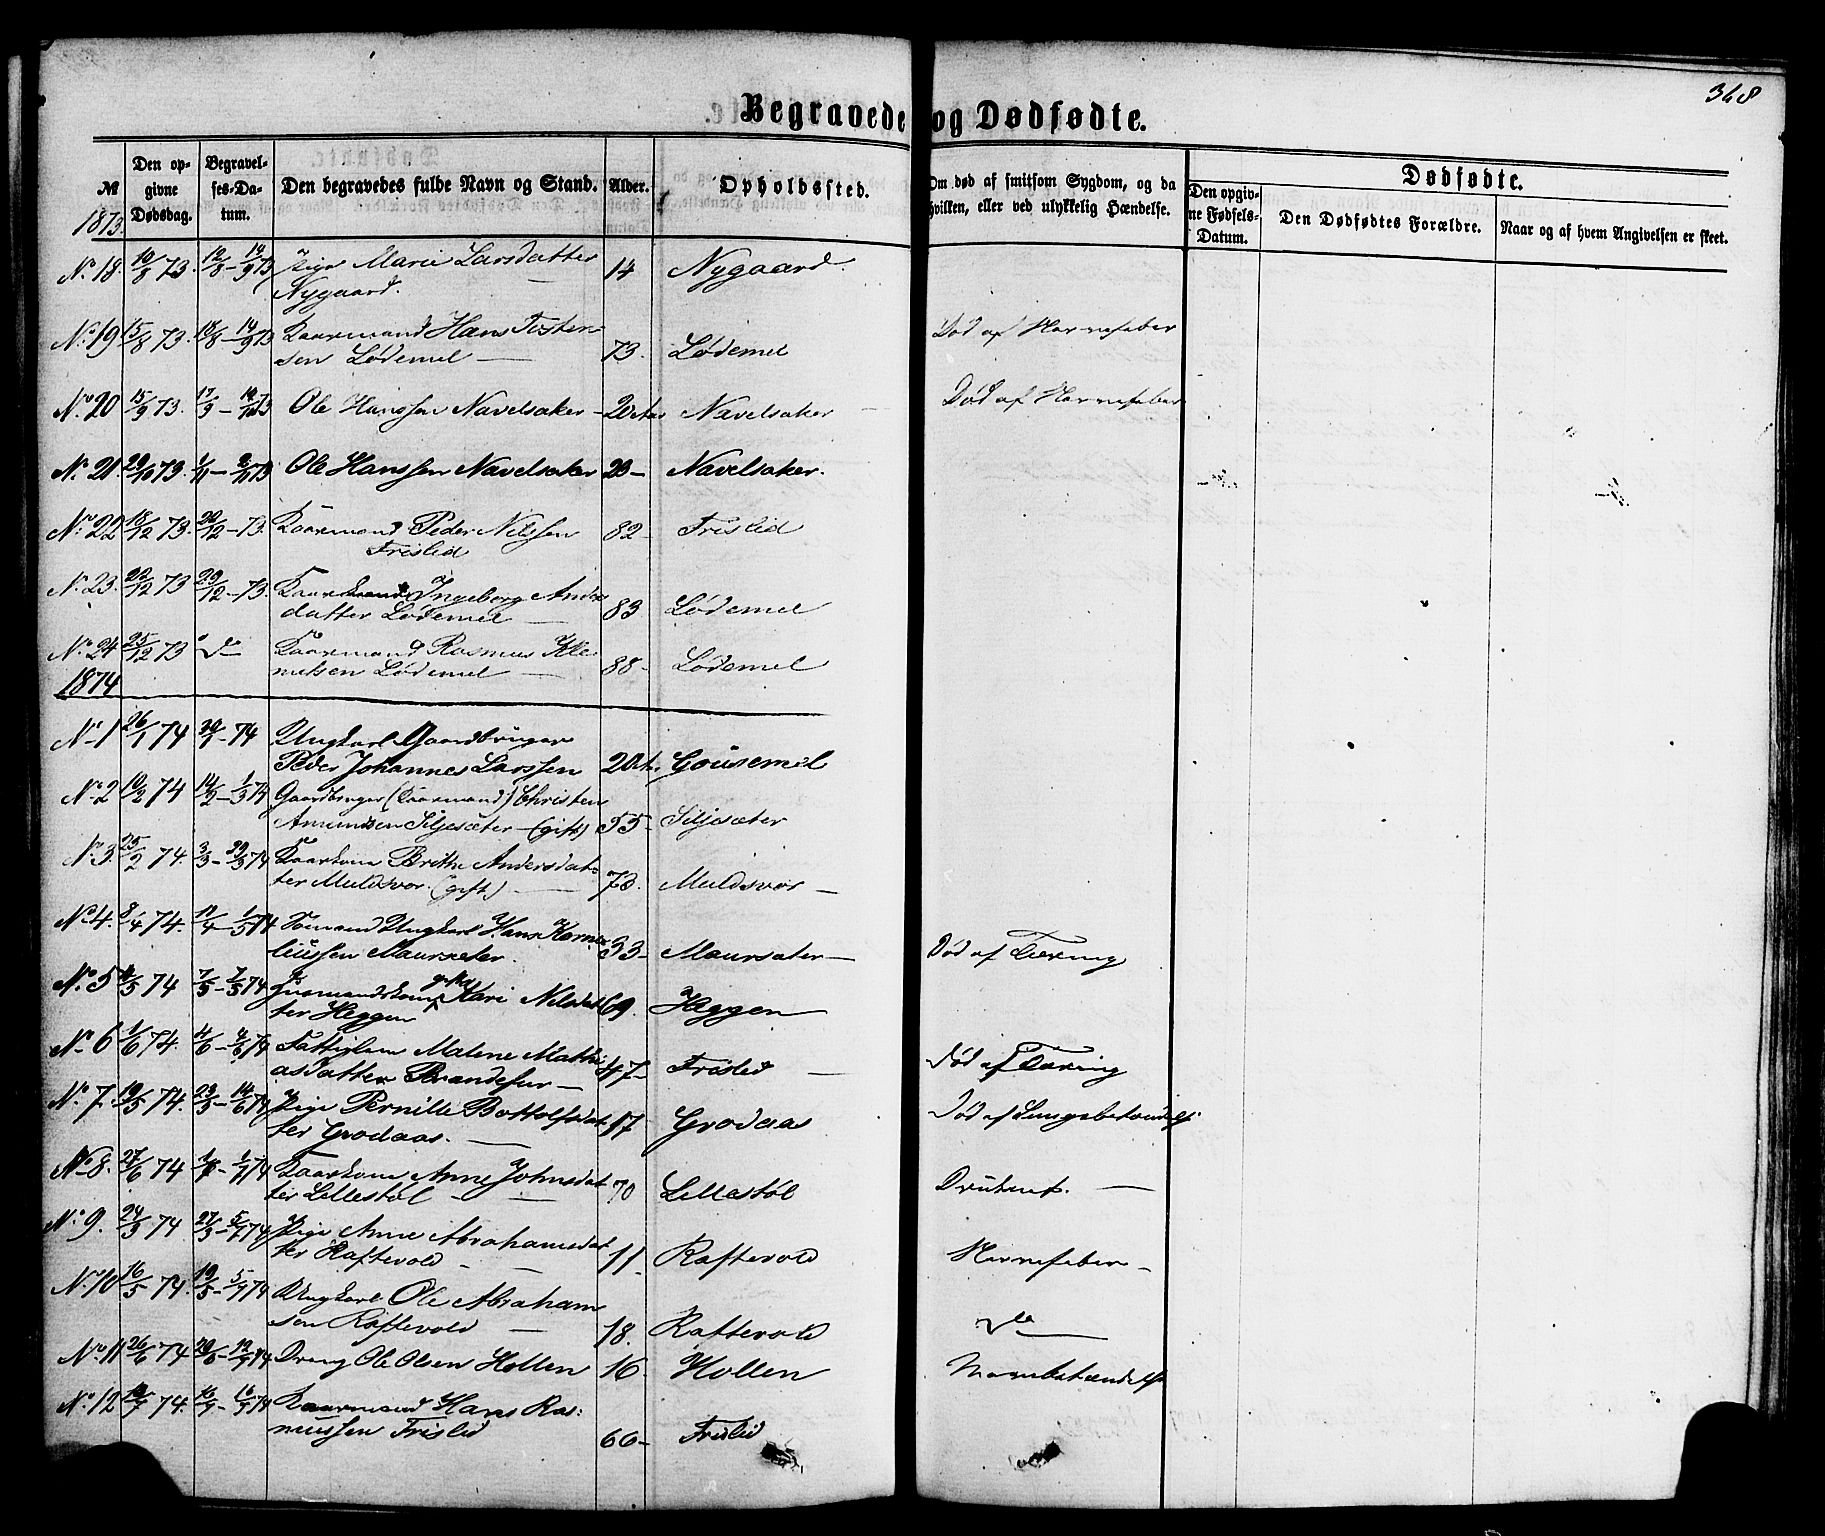 368
Begravede og Dødfødte.
№ 1873.
Den opgivne Dødsdag.
Begravelses-Datum.
Den begravedes fulde Navn og Stand.
Alder.
Opholdssted.
Om død af smitsom Sygdom, og da hvilken, eller ved ulykkelig Hændelse.
Dødfødte.
Den opgivne Fødsels-Datum.
Den Dødfødtes Forældre.
Naar og af hvem Angivelsen er skeet.
No 18 10/8 73. 12/8 - 14/9 73 Pige Marie Larsdatter 14 Nygaard.
Nygaard.
No 19 15/8 73. 18/8 - 14/9 73 Kaarmand Hans Tosten-
sen Lødemel 73. Lødemel Død af Nervefeber
No 20 15/9 73. 17/9 - Ole Hanssen Navelsaker - Navelsaker Død af Nervefeber
No 21. 29/10 73. 1/11 - 2/11 73 Ole Hanssen Navelsaker Navelsaker.
No 22 18/12 73. 20/12 - 73. Kaarmand Peder Nilssen 82 - Frislid
Frislid
No 23. 22/12 73 29/12 - 73. Ingeborg Anders
datter Lødemel 83 Lødemel
No 24 25/12 73 do Kaarmand Rasmus Kle-
metsen Lødemel 88 - Lødemel
1874
No 1 26/1 74 30/1 - 74 Ungkarl Gaardbruger
Peder Johannes Larssen Gousemel
No 2 10/2 74 14/2 - 1/3 74 Gaardbruger (Kaarmand) Christen
Amundsen Siljesæter - (gift) 55 - Siljesæter
No 3. 25/2 74. 3/3 - 29/3 74 Kaarkone Brithe Andersdat-
ter Muldsvor. (gift) 73. Muldsvor -
No 4. 8/4 74. 11/4 - 1/5 74 Ungkarl Hans Korne-
liussen Maursæter. 33 - Maursæter - Død af Tæring
No 5 74 7/5 - 7/5 74 Husmandskone Kari Nilsdat
ter Heggen 69. Heggen
No 6 1/6 74. 4/6 - 4/6 74 Fattiglem Malene Mathi-
asdatter Brandefur - 47 - Frislid - Død af Tæring
No 7. 19/5 74. 23/5 - 14/6 74 Pige Pernille Bottolfsdat
ter Grodaas. 17 Grodaas Død af Lungebetændelse
No 8. 27/6 74 1/7 - 1/7 74 Kaarkone Anne Johnsdat
ter Lillestøl 70 Lillestøl
No 9. 24/3 74 27/3 - 5/7 74 Pige Anne Abrahamsdat
ter Raftevold 11. Raftevold Nervefeber -
No 10 16/5 74. 19/5 - 5/7 74 Ungkarl Ole Abraham
sen Raftevold 18. Raftevold do
No 11 26/6 74 Dreng Ole Olsen Hollen 16. Hollen
No 12 74. Kaarmand Hans Ras-
mussen Frislid 66 - Frislid